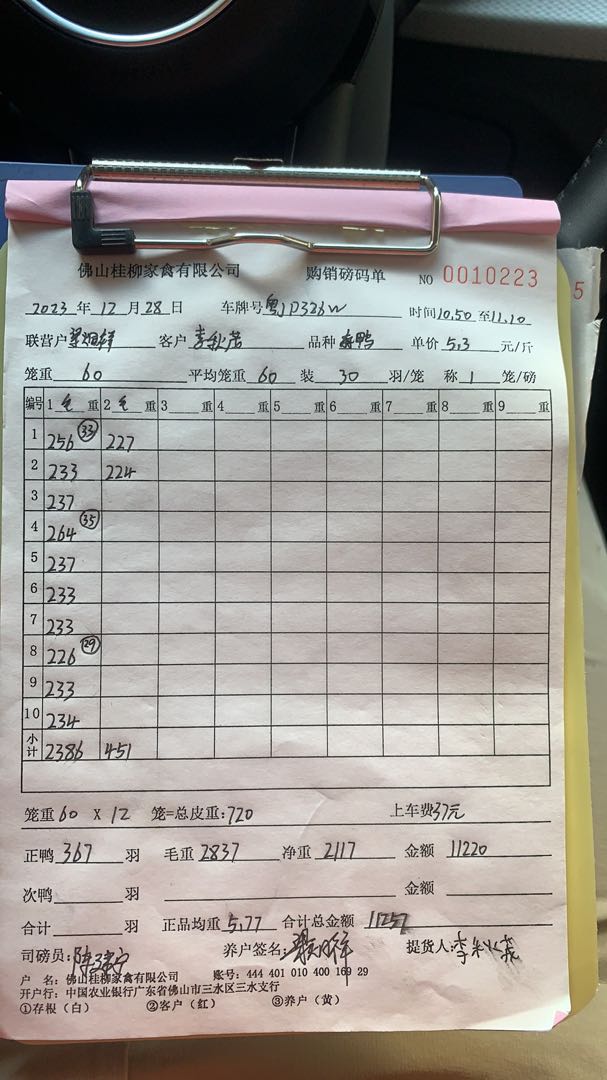 佛山桂柳家禽有限公司 购销磅码单 NO 0010223
5
2023年12月28日 车牌号 粤JD326W 时间10.50至11.10
联营户 客户 李 品种 鸭 单价 5.3 元/斤
笼重 60 平均笼重 60 装 30 羽/笼 称 1 笼/磅
编号 1 毛 重 2 毛 重 3 重 4 重 5 重 6 重 7 重 8 重 9 重
1 256 (33) 227
2 233 224
3 237
4 264 (35)
5 237
6 233
7 233
8 226 (29)
9 233
10 234
小计 2386 451
笼重 60 X 12 笼=总皮重:720 上车费37元
正鸭 367 羽 毛重 2837 净重 2117 金额 11220
次鸭 羽 金额
合计 羽 正品均重 5.77 合计总金额 11257
司磅员: 陈 养户签名: 祥 提货人: 李
户 名: 佛山桂柳家禽有限公司 账号: 444 401 010 400 169 29
开户行: 中国农业银行广东省佛山市三水区三水支行
①存根（白） ②客户（红） ③养户（黄）